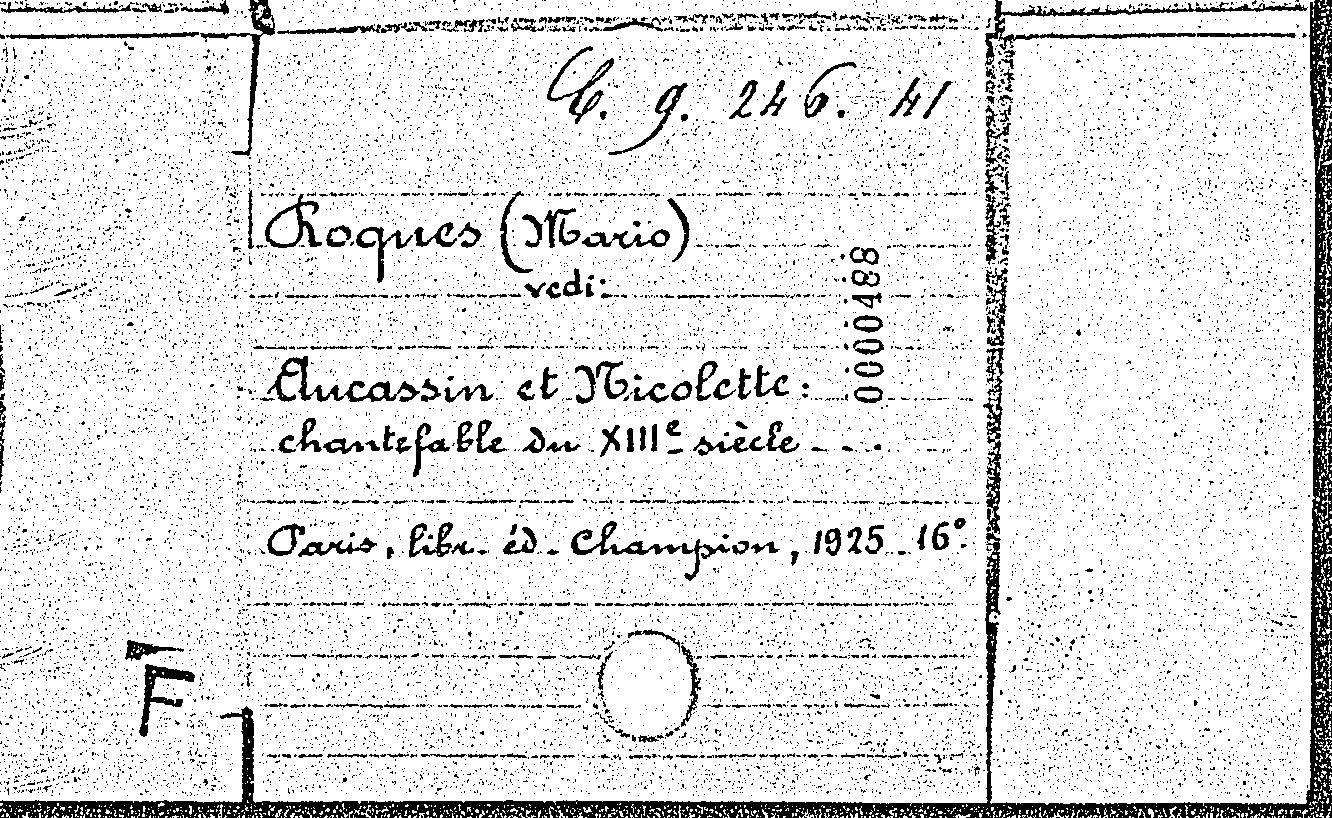 C. g. 246. 41
Roques (Mario)
vedi:
0000488
Aucassin et Nicolette:
chantefable du XIIIe siècle - - .
Paris, libr. éd. Champion, 1925. 16°.
F